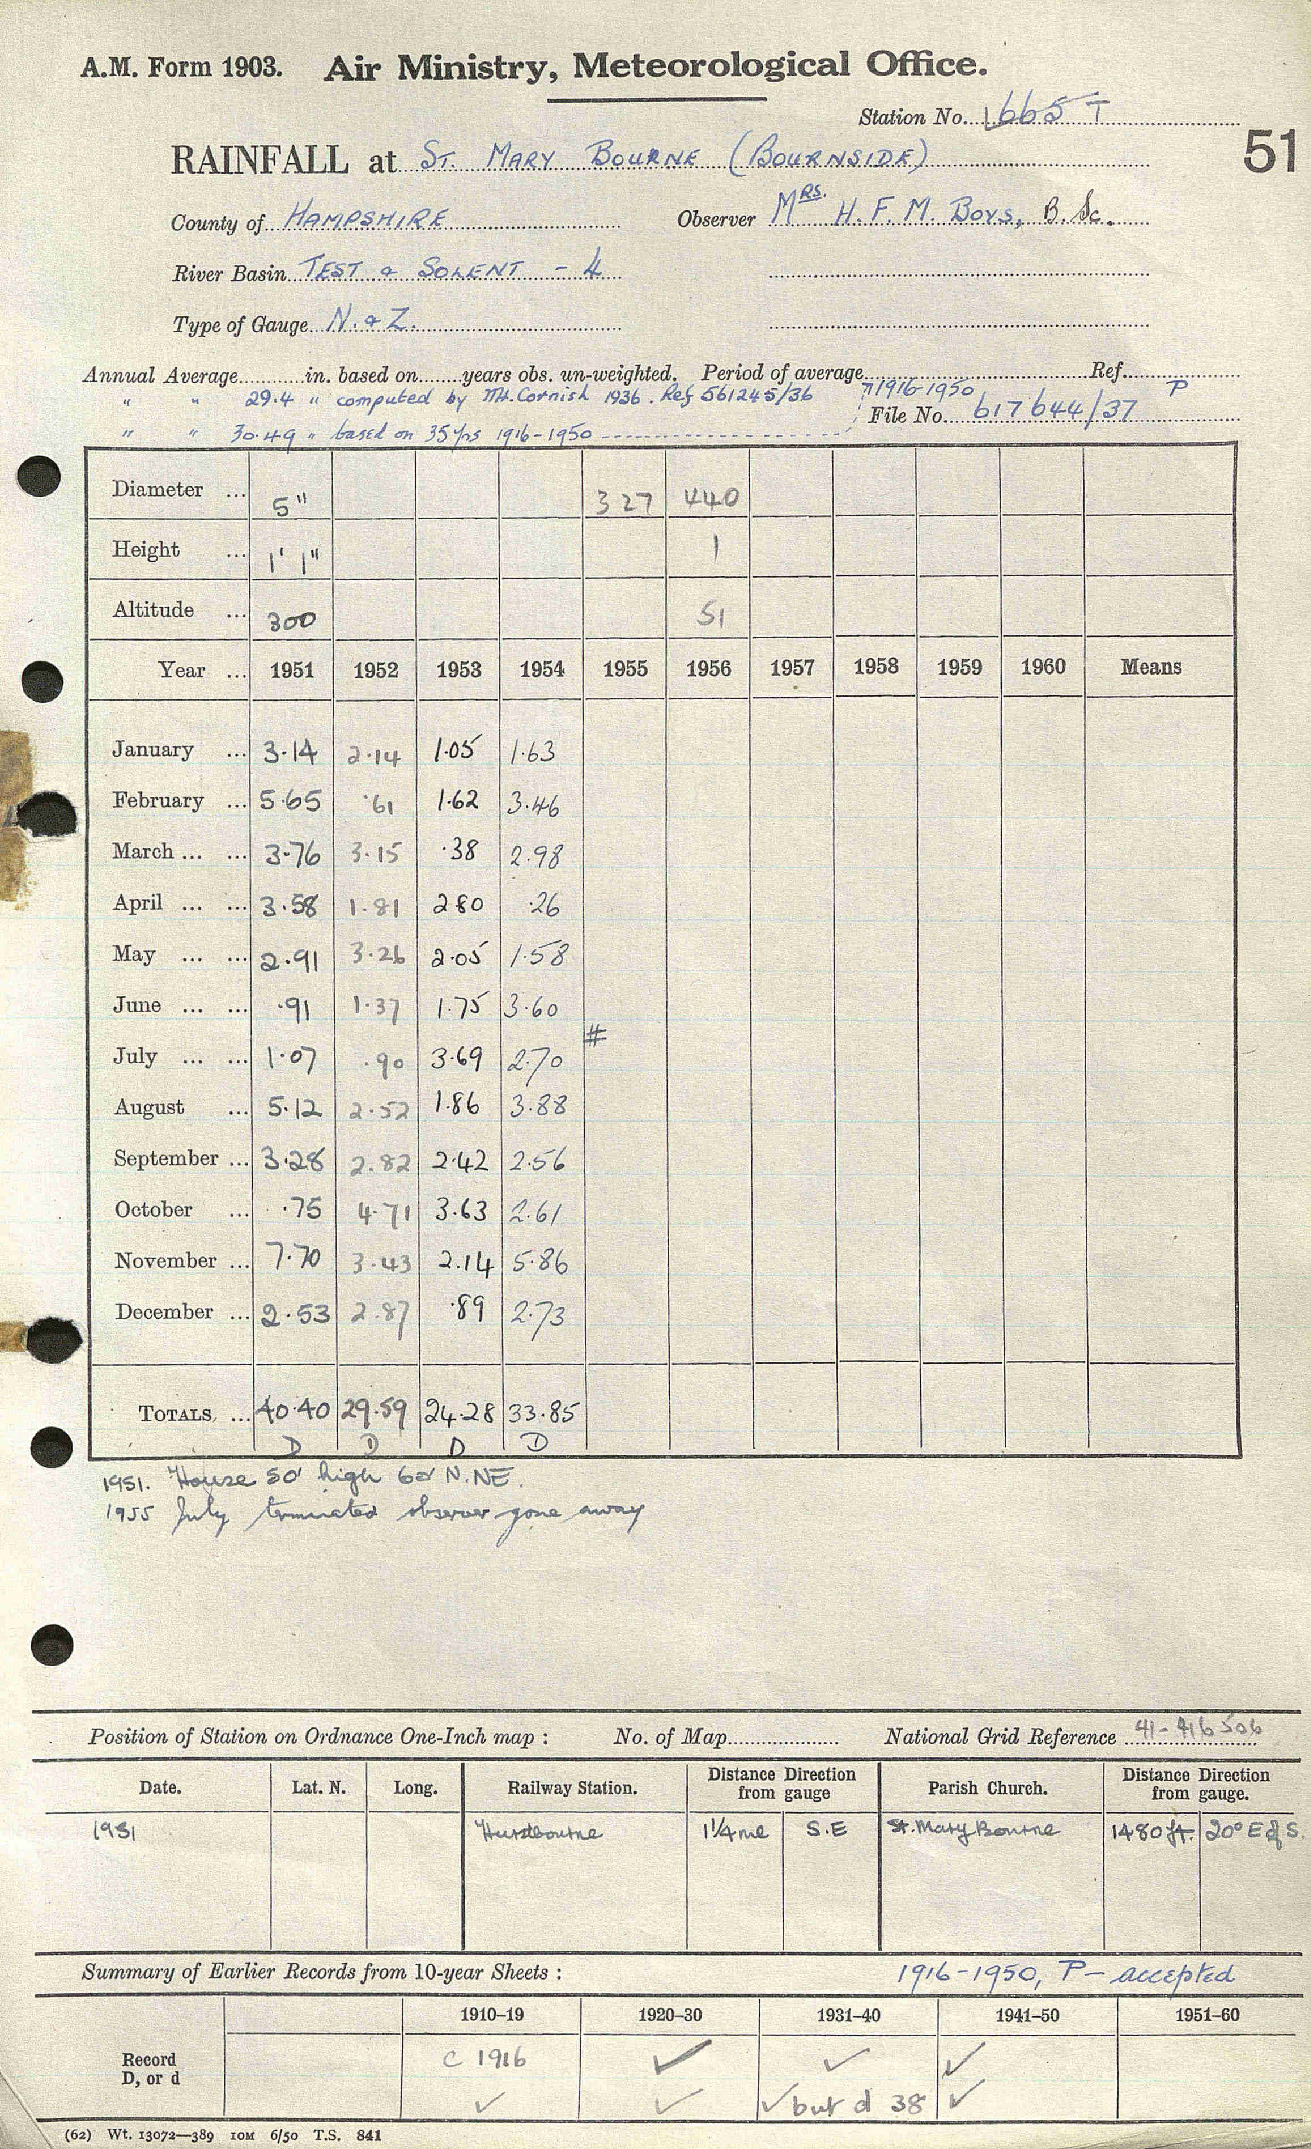 A.M. Form 1903. Air Ministry, Meteorological Office.
Station No. 1665 T
51
RAINFALL at ST. MARY BOURNE (BOURNSIDE)
County of HAMPSHIRE Observer MRS. H. F. M. BOYS, B. Sc.
River Basin TEST & SOLENT - 4
Type of Gauge N. & Z.
Annual Average in. based on years obs. un-weighted. Period of average 1916-1950 Ref. P
" " 29.4 " computed by Mr. Cornish 1936. Ref 561245/36 File No. 617644/37
" " 30.49 " based on 35 yrs 1916-1950
Diameter ... 5" 327 440
Height ... 1' 1" 1
Altitude ... 300 51
Year ... 1951 1952 1953 1954 1955 1956 1957 1958 1959 1960 Means
January ... 3.14 2.14 1.05 1.63
February ... 5.65 .61 1.62 3.46
March ... ... 3.76 3.15 .38 2.98
April ... ... 3.58 1.81 2.80 .26
May ... ... 2.91 3.26 2.05 1.58
June ... ... .91 1.37 1.75 3.60
#
July ... ... 1.07 .90 3.69 2.70
August ... 5.12 2.52 1.86 3.88
September ... 3.28 2.82 2.42 2.56
October ... .75 4.71 3.63 2.61
November ... 7.70 3.43 2.14 5.86
December ... 2.53 2.87 .89 2.73
TOTALS ... 40.40 29.59 24.28 33.85
D D D D
1951. House 50' high 60' N.NE.
1955 July terminated observer gone away
Position of Station on Ordnance One-Inch map : No. of Map National Grid Reference 41-416506
Date. Lat. N. Long. Railway Station. Distance Direction from gauge Parish Church. Distance Direction from gauge.
1951 Hurstbourne 1¼ me S.E St. Mary Bourne 1480 ft. 20° E of S.
Summary of Earlier Records from 10-year Sheets : 1916-1950, P - accepted
1910-19 1920-30 1931-40 1941-50 1951-60
Record D, or d C 1916 ✓ ✓ ✓
✓ ✓ ✓ but d 38 ✓
(62) Wt. 13072—389 10M 6/50 T.S. 841